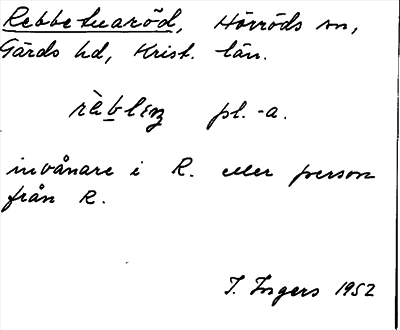 Rebbetuaröd, Hörröds sn,
Gärds hd, Krist. län.
rèbliŋ pl. -a.
invånare i R. eller person
från R.
I. Ingers 1952